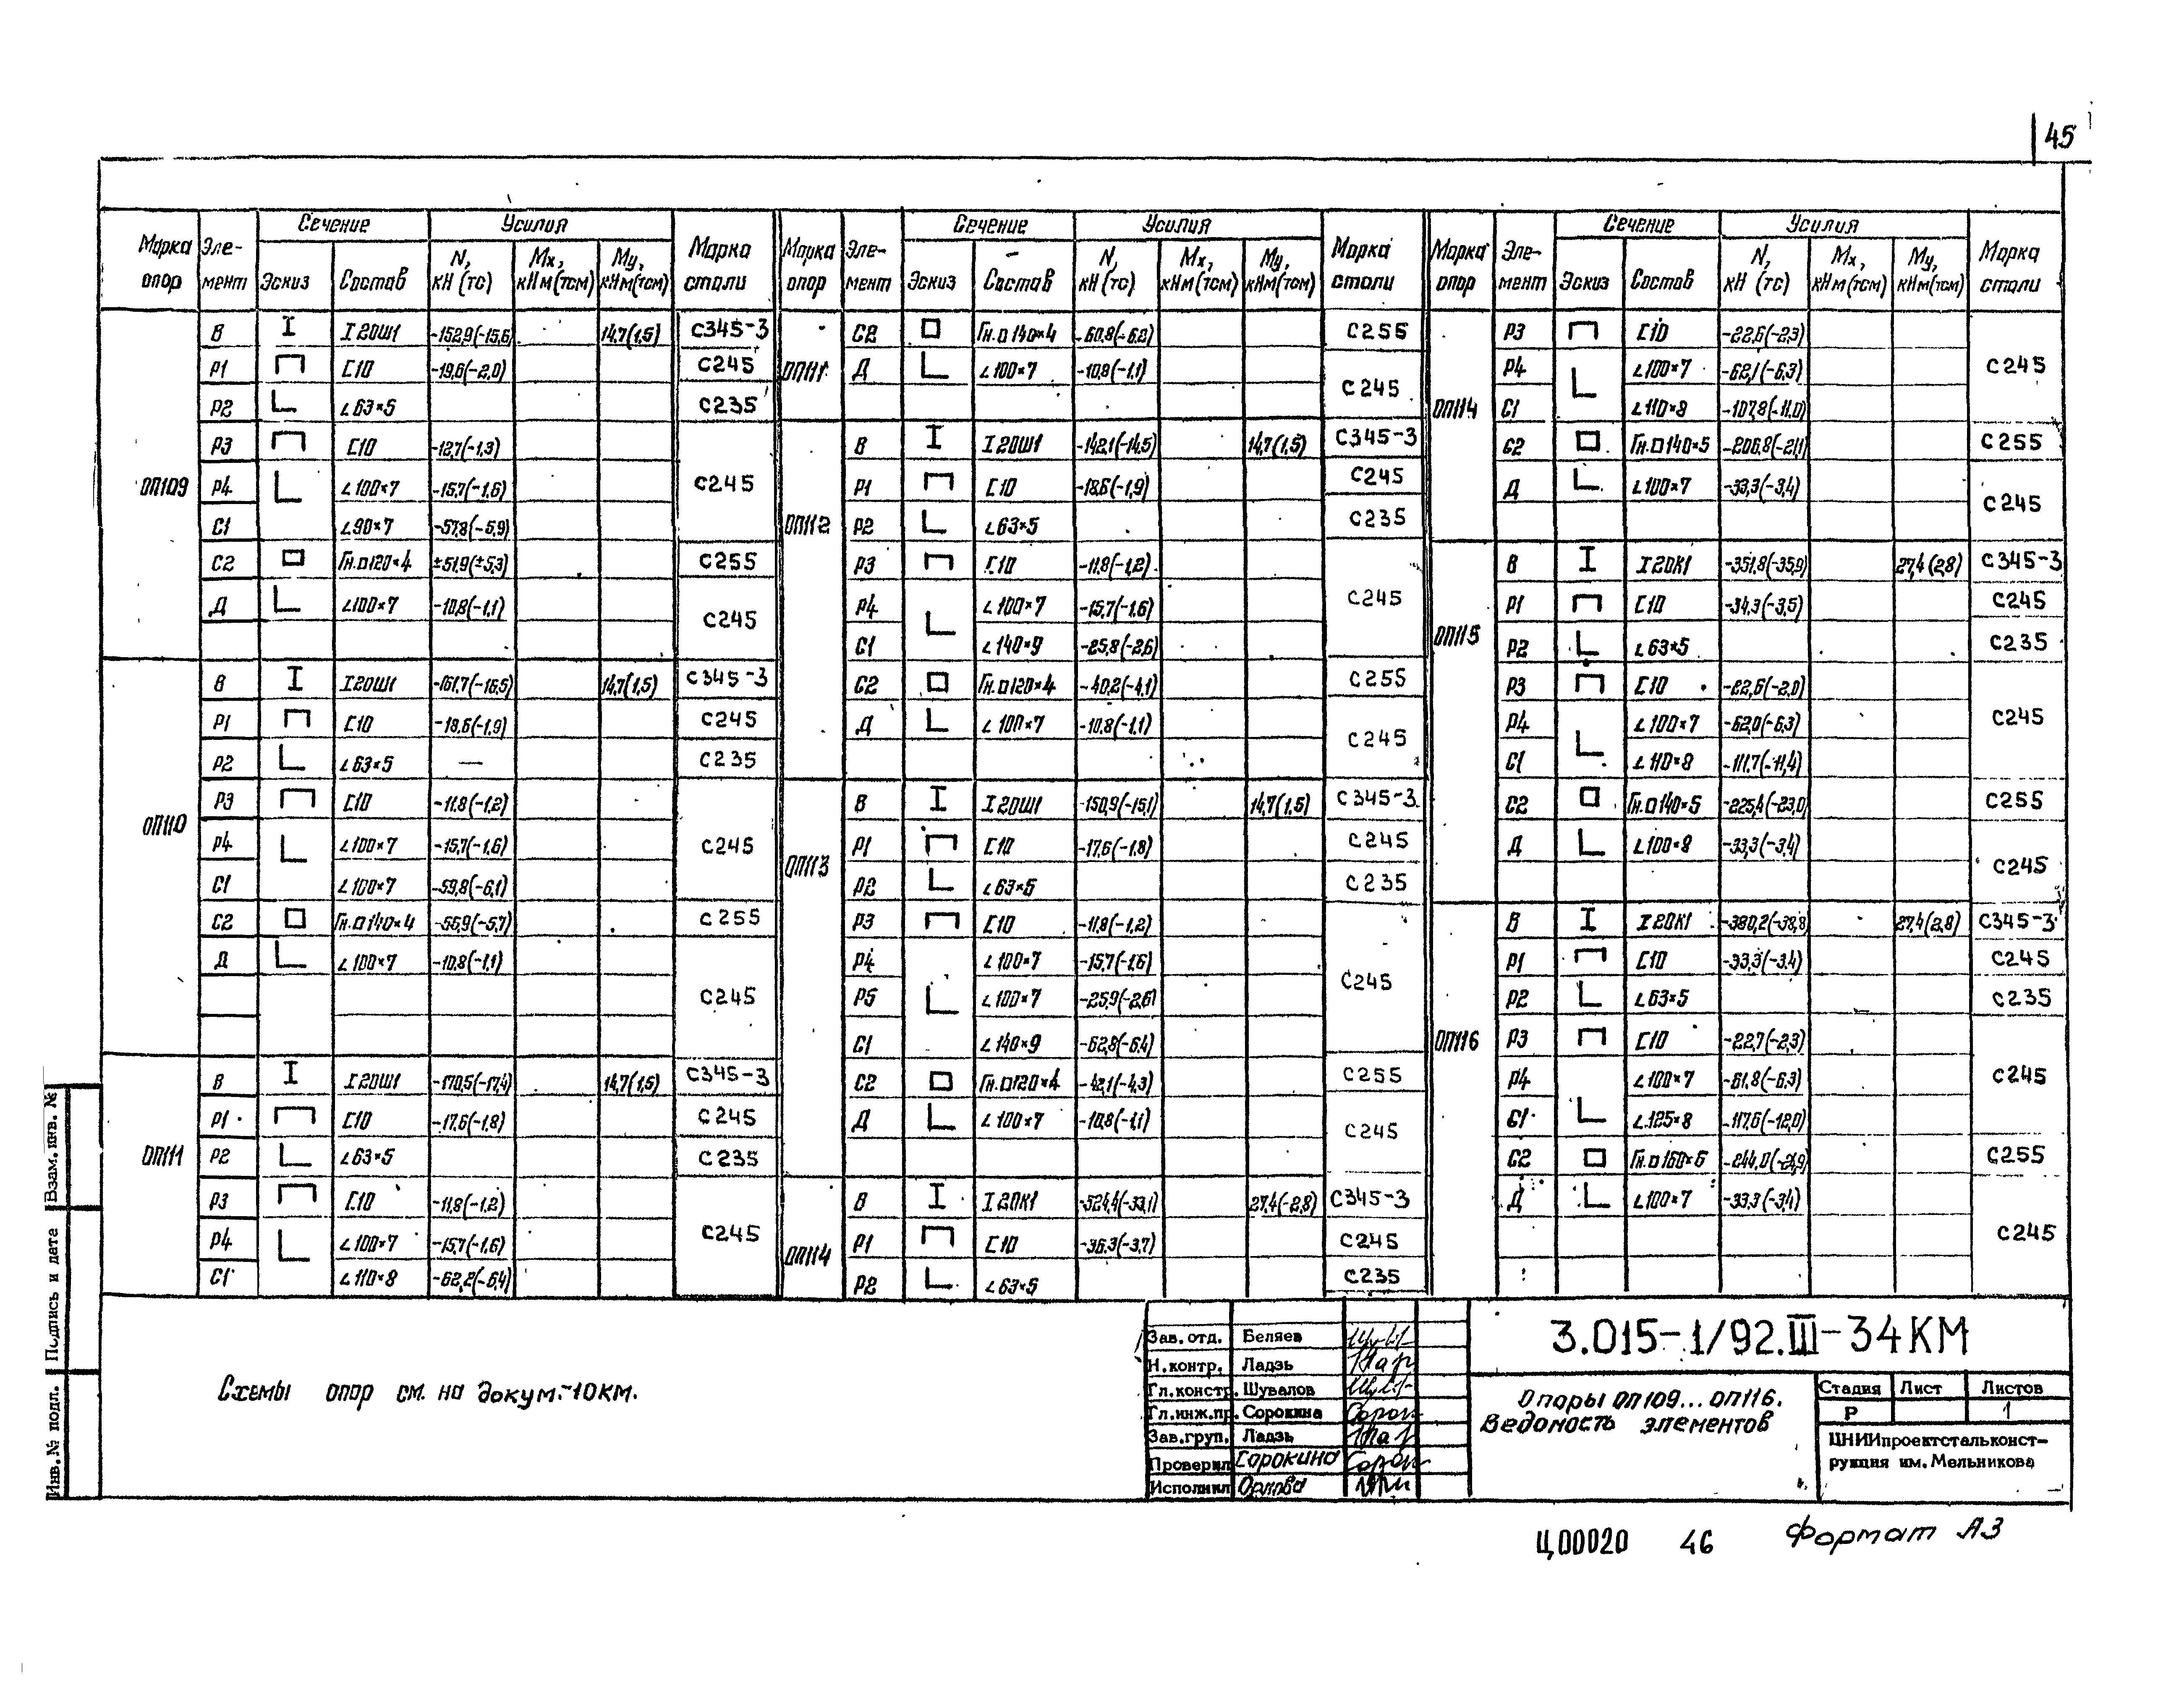 45
Марка опор Эле-мент Сечение Усилия Марка стали
Эскиз Состав N, кН (тс) Mx, кНм(тсм) My, кНм(тсм)
ОП109
В I20Ш1 -152,9(-15,6) 14,7(1,5) С345-3
Р1 С10 -19,6(-2,0) С245
Р2 ∟63×5 С235
Р3 С10 -12,7(-1,3) С245
Р4 ∟100×7 -15,7(-1,6)
С1 ∟90×7 -57,8(-5,9)
С2 Гн.□120×4 ±51,9(±5,3) С255
Д ∟100×7 -10,8(-1,1) С245
ОП110
В I20Ш1 -161,7(-16,5) 14,7(1,5) С345-3
Р1 С10 -18,6(-1,9) С245
Р2 ∟63×5 — С235
Р3 С10 -11,8(-1,2) С245
Р4 ∟100×7 -15,7(-1,6)
С1 ∟100×7 -59,8(-6,1)
С2 Гн.□140×4 -55,9(-5,7) С255
Д ∟100×7 -10,8(-1,1) С245
ОП111
В I20Ш1 -170,5(-17,4) 14,7(1,5) С345-3
Р1 С10 -17,6(-1,8) С245
Р2 ∟63×5 С235
Р3 С10 -11,8(-1,2) С245
Р4 ∟100×7 -15,7(-1,6)
С1 ∟110×8 -62,2(-6,4)
Марка опор Эле-мент Сечение Усилия Марка стали
Эскиз Состав N, кН (тс) Mx, кНм(тсм) My, кНм(тсм)
ОП111
С2 Гн.□140×4 -60,8(-6,2) С255
Д ∟100×7 -10,8(-1,1) С245
ОП112
В I20Ш1 -142,1(-14,5) 14,7(1,5) С345-3
Р1 С10 -18,6(-1,9) С245
Р2 ∟63×5 С235
Р3 С10 -11,8(-1,2) С245
Р4 ∟100×7 -15,7(-1,6)
С1 ∟140×9 -25,8(-2,6)
С2 Гн.□120×4 -40,2(-4,1) С255
Д ∟100×7 -10,8(-1,1) С245
ОП113
В I20Ш1 -150,9(-15,1) 14,7(1,5) С345-3
Р1 С10 -17,6(-1,8) С245
Р2 ∟63×5 С235
Р3 С10 -11,8(-1,2) С245
Р4 ∟100×7 -15,7(-1,6)
Р5 ∟100×7 -25,9(-2,6)
С1 ∟140×9 -62,8(-6,4)
С2 Гн.□120×4 -42,1(-4,3) С255
Д ∟100×7 -10,8(-1,1) С245
ОП114
В I20К1 -324,4(-33,1) 27,4(-2,8) С345-3
Р1 С10 -36,3(-3,7) С245
Р2 ∟63×5 С235
Марка опор Эле-мент Сечение Усилия Марка стали
Эскиз Состав N, кН (тс) Mx, кНм(тсм) My, кНм(тсм)
ОП114
Р3 С10 -22,6(-2,3) С245
Р4 ∟100×7 -62,1(-6,3)
С1 ∟110×8 -107,8(-11,0)
С2 Гн.□140×5 -206,8(-21,1) С255
Д ∟100×7 -33,3(-3,4) С245
ОП115
В I20К1 -351,8(-35,9) 27,4(2,8) С345-3
Р1 С10 -34,3(-3,5) С245
Р2 ∟63×5 С235
Р3 С10 -22,6(-2,0) С245
Р4 ∟100×7 -62,0(-6,3)
С1 ∟110×8 -111,7(-11,4)
С2 Гн.□140×5 -225,4(-23,0) С255
Д ∟100×8 -33,3(-3,4) С245
ОП116
В I20К1 -380,2(-38,8) 27,4(2,8) С345-3
Р1 С10 -33,3(-3,4) С245
Р2 ∟63×5 С235
Р3 С10 -22,7(-2,3) С245
Р4 ∟100×7 -61,8(-6,3)
С1 ∟125×8 -117,6(-12,0)
С2 Гн.□160×6 -244,0 С255
Д ∟100×7 -33,3(-3,4) С245
Схемы опор см. на докум.-10КМ.
Взам. инв. №
Подпись и дата
Инв. № подл.
Зав. отд. Беляев
Н.контр. Ладзь
Гл.констр. Шувалов
Гл.инж.пр. Сорокина
Зав.груп. Ладзь
Проверил Сорокина
Исполнил Орлова
3.015-1/92.III-34КМ
Опоры ОП109...ОП116.
Ведомость элементов
Стадия Лист Листов
Р 1
ЦНИИпроектстальконст-
рукция им. Мельникова
Ц00020 46 Формат А3